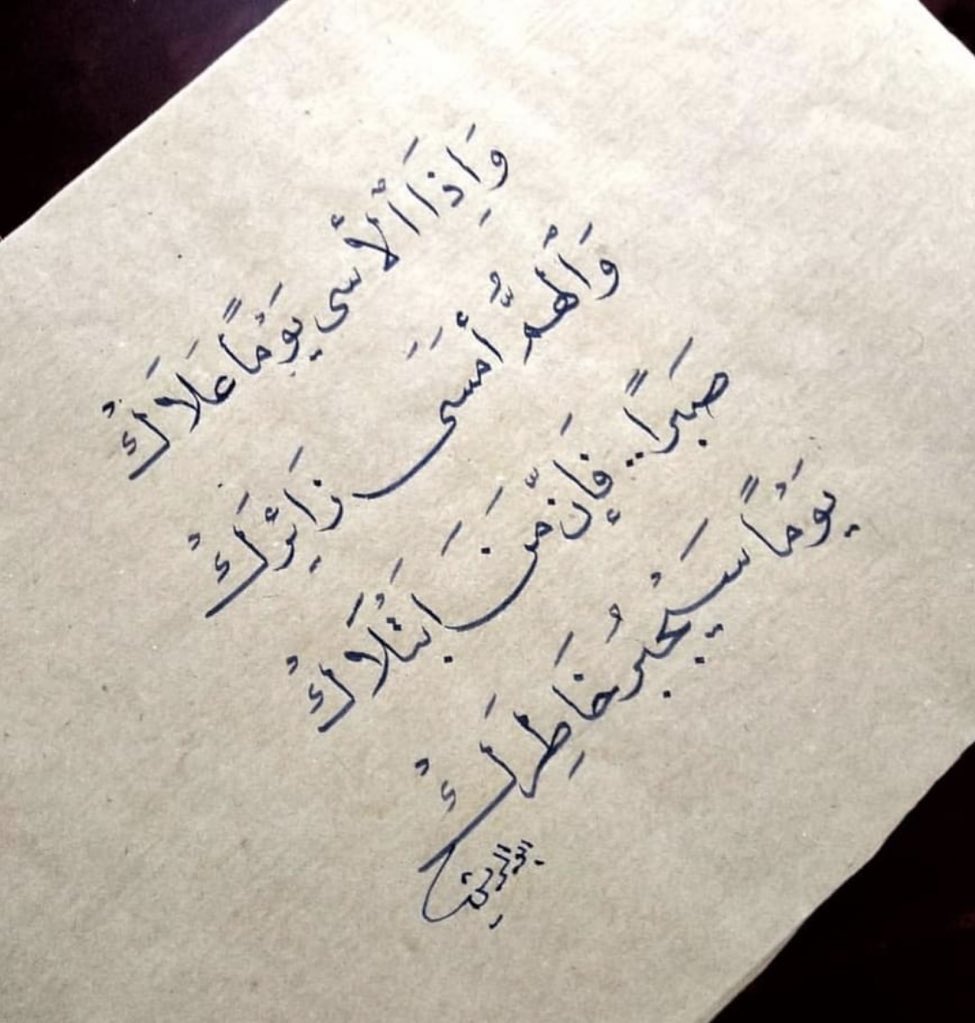 وَإِذَا ٱلْأَسَى يَوْمًا عَلَاكْ
وَٱلْهَمُّ أَمْسَى زَائِرَكْ
صَبْرًا.. فَإِنَّ مَنَ ابْتَلَاكْ
يَوْمًا سَيَجْبُرُ خَاطِرَكْ